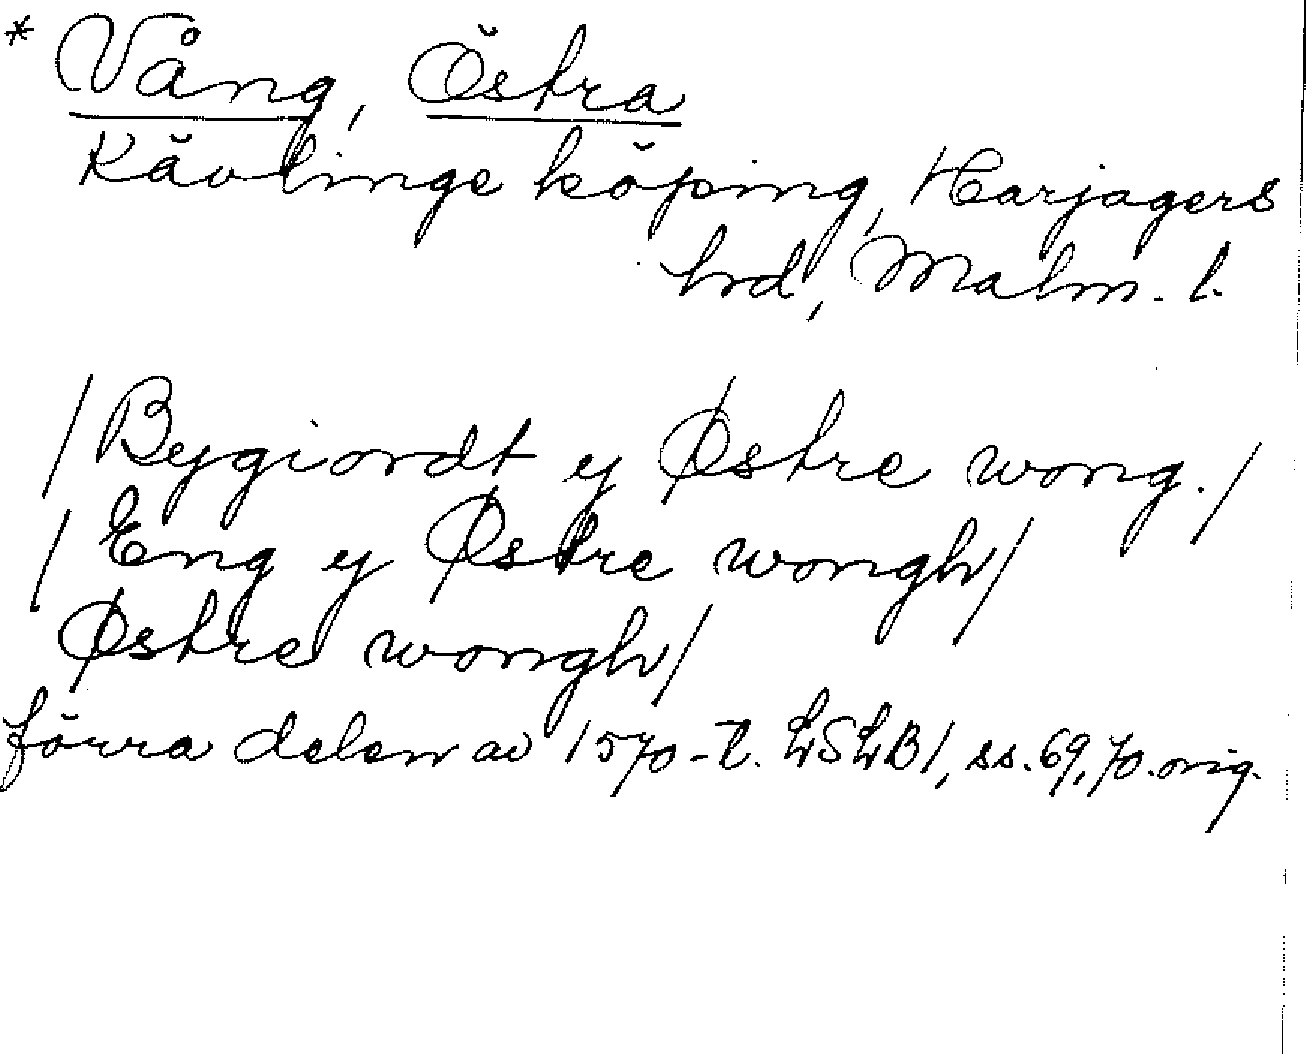 * Vång, Östra
Kävlinge köping, Harjagers
hrd, Malm. l.
/Bygiordt y Østre wong./
/Eng y Østre wongh/
Østre wongh/
förra delen av 1570-t. LSLB1, ss. 69, 70. orig.